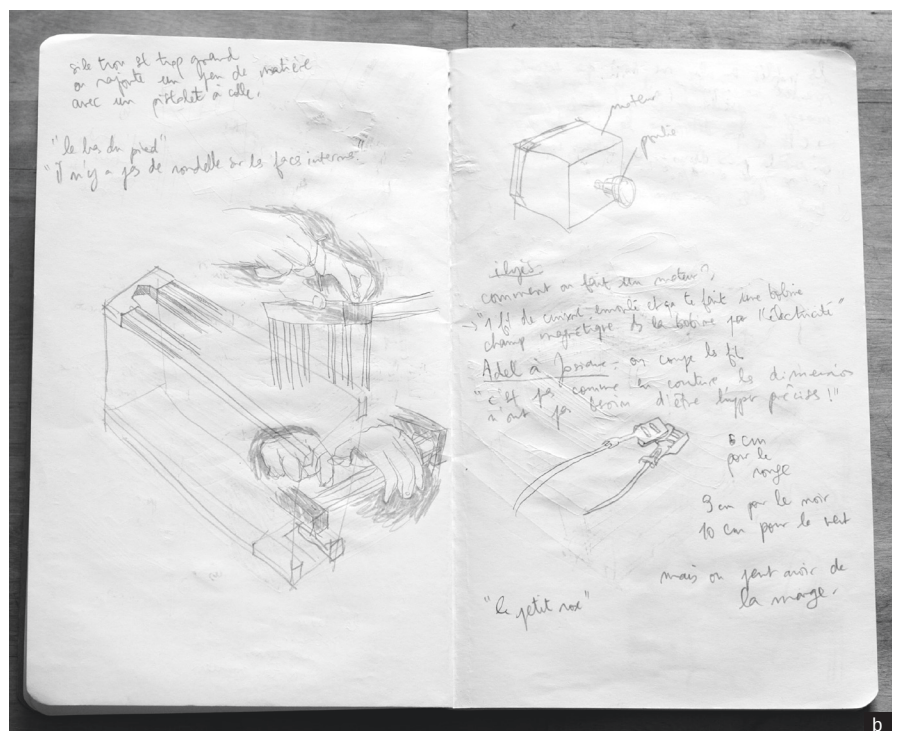 si le trou est trop grand
on rajoute un peu de matière
avec un pistolet à colle.
"le bas du pied"
"Il n'y a pas de rondelle sur les faces internes"
moteur
ilyès
comment on fait un moteur?
→ "1 fil de cuivre enroulé et ça te fait une bobine
champ magnétique ds la bobine par "électricité"
Adel à Josiane: on coupe les fils
"c'est pas comme la couture, les dimensions
n'ont pas besoin d'être hyper précises!"
8 cm
pour le
rouge
9 cm par le noir
10 cm pour le vert
mais on peut avoir de
la marge.
"le petit
b